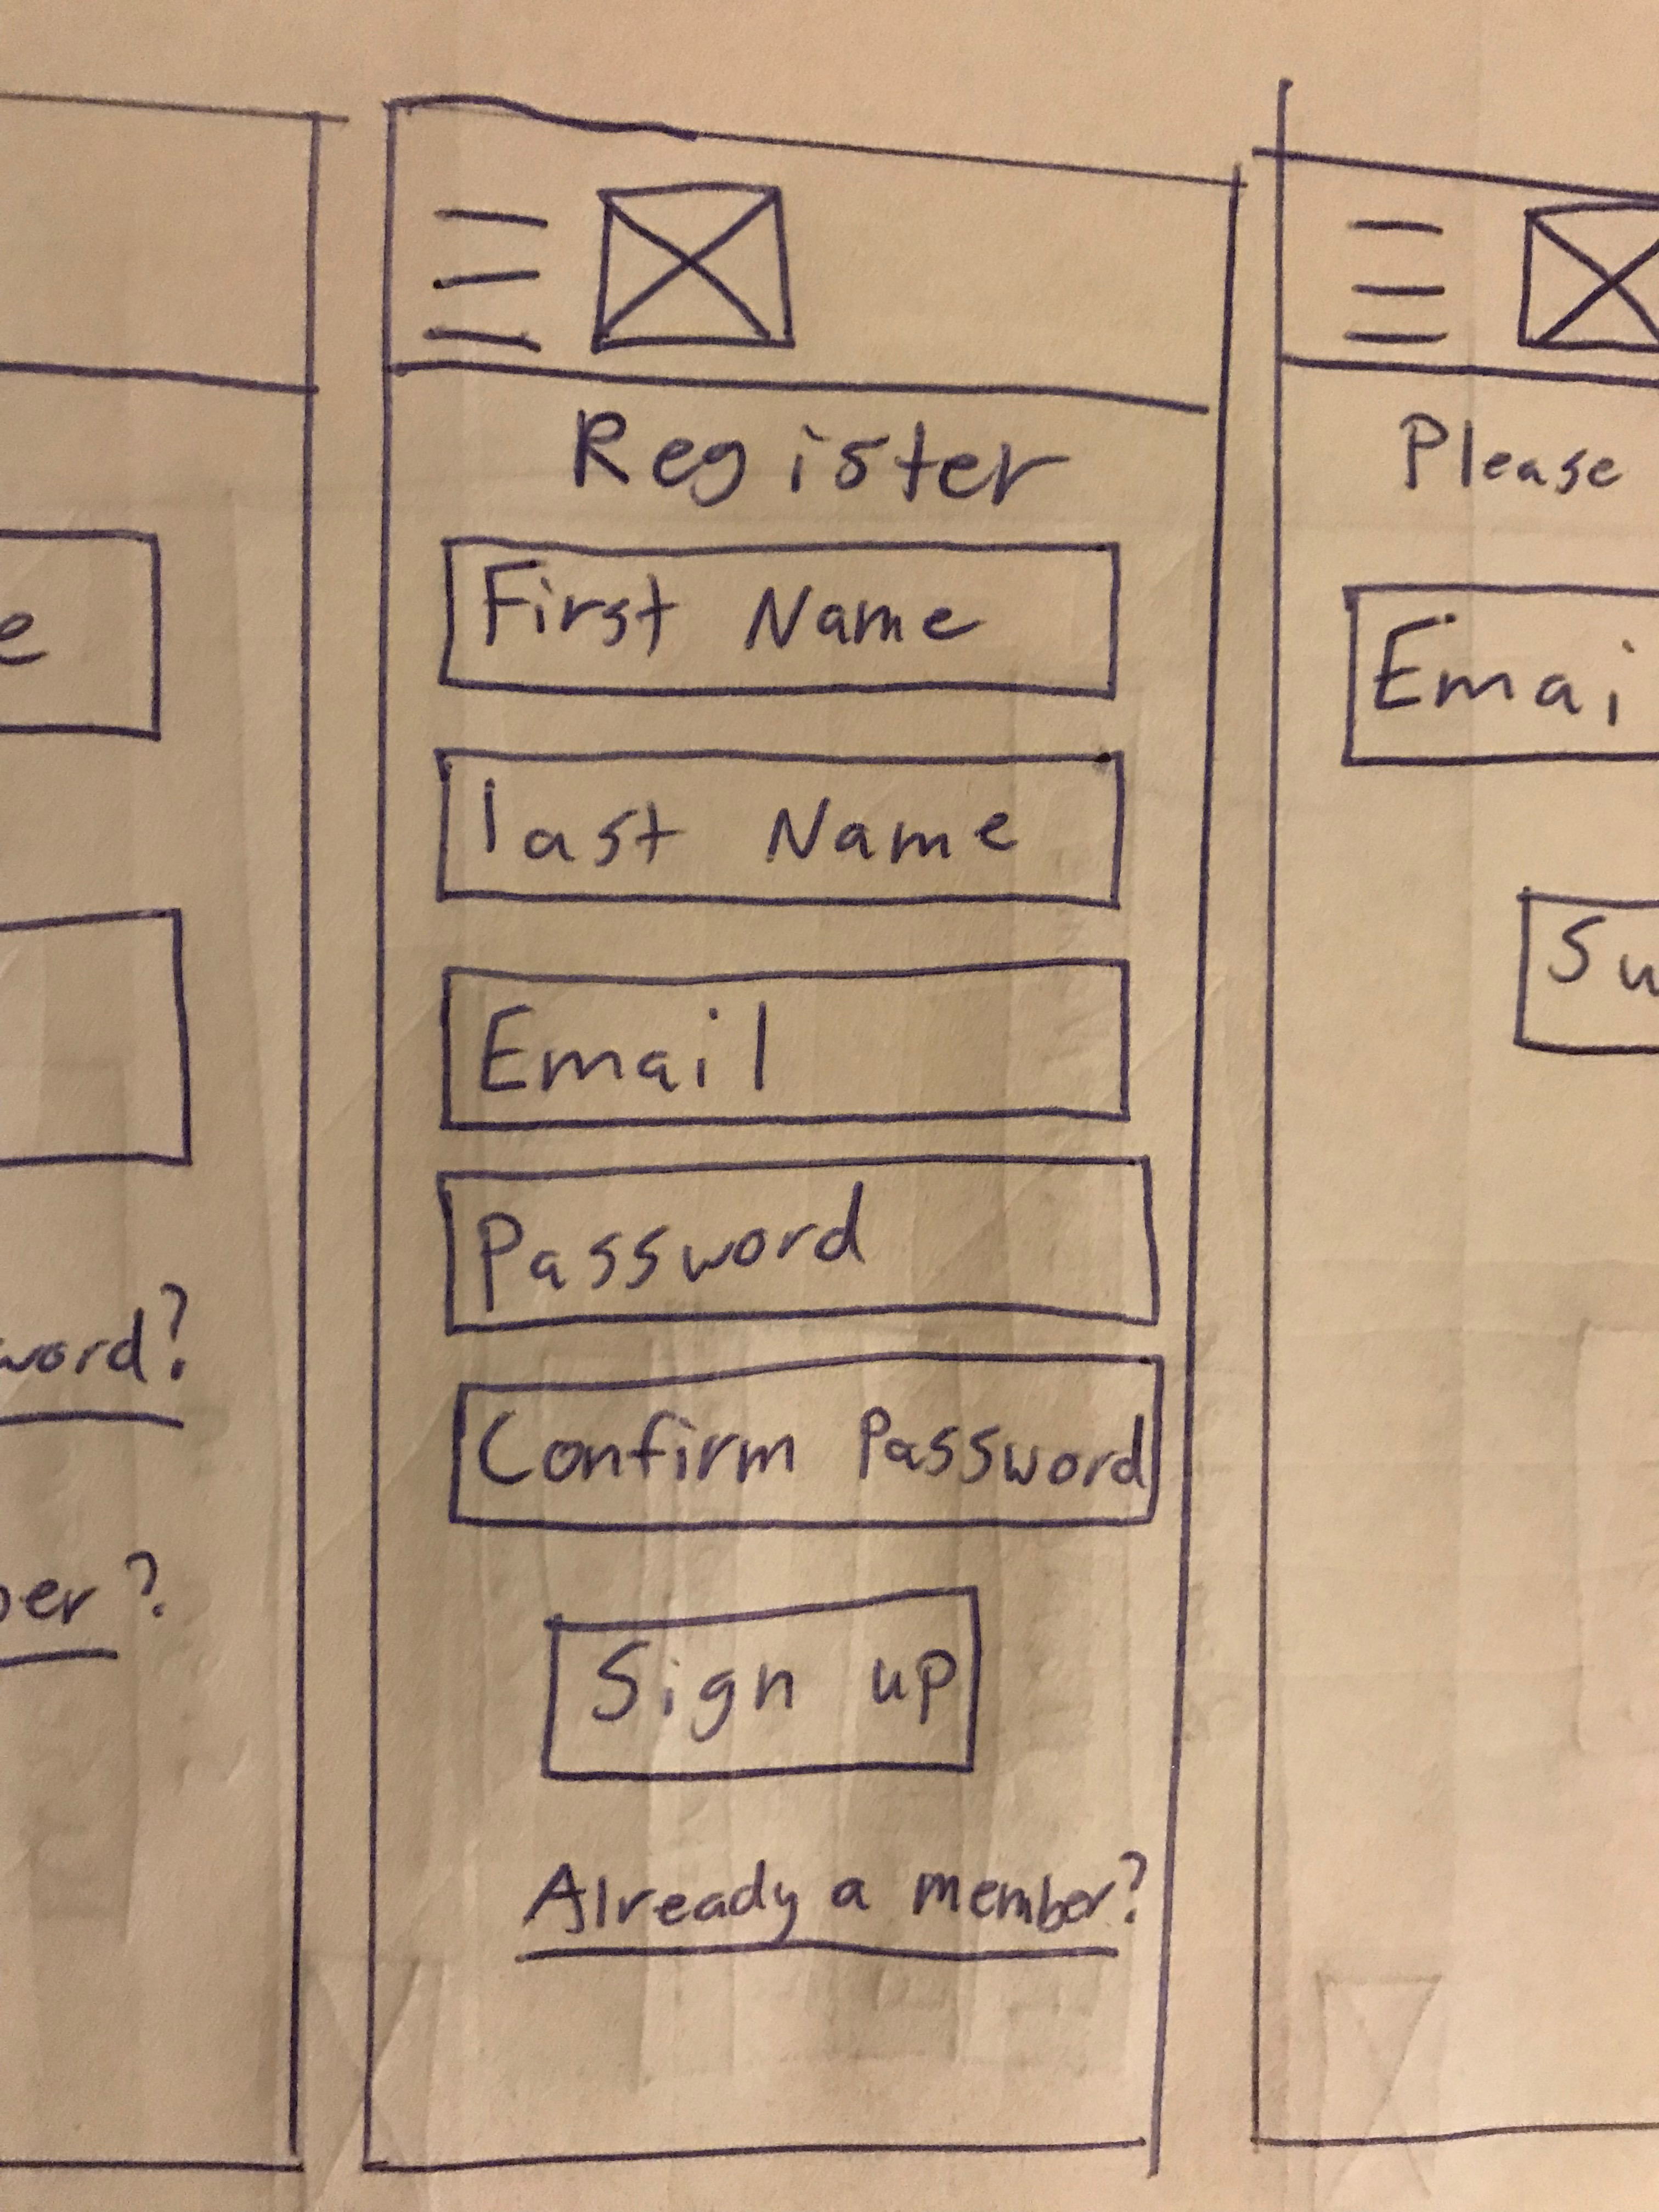 Register
First Name
last Name
Email
Password
Confirm Password
Sign up
Already a member?
Please
Emai
Su
e
word?
ber?